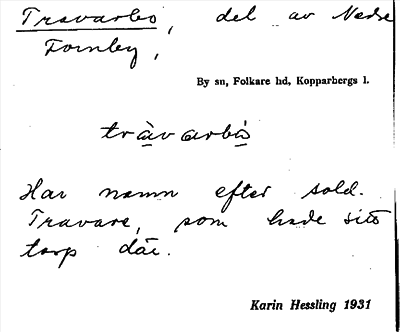 Travarbo, del av Nedre
Fornby,
By sn, Folkare hd, Kopparbergs l.
tràvarbò
Har namn efter sold.
Travare, som hade sitt
torp där.
Karin Hessling 1931